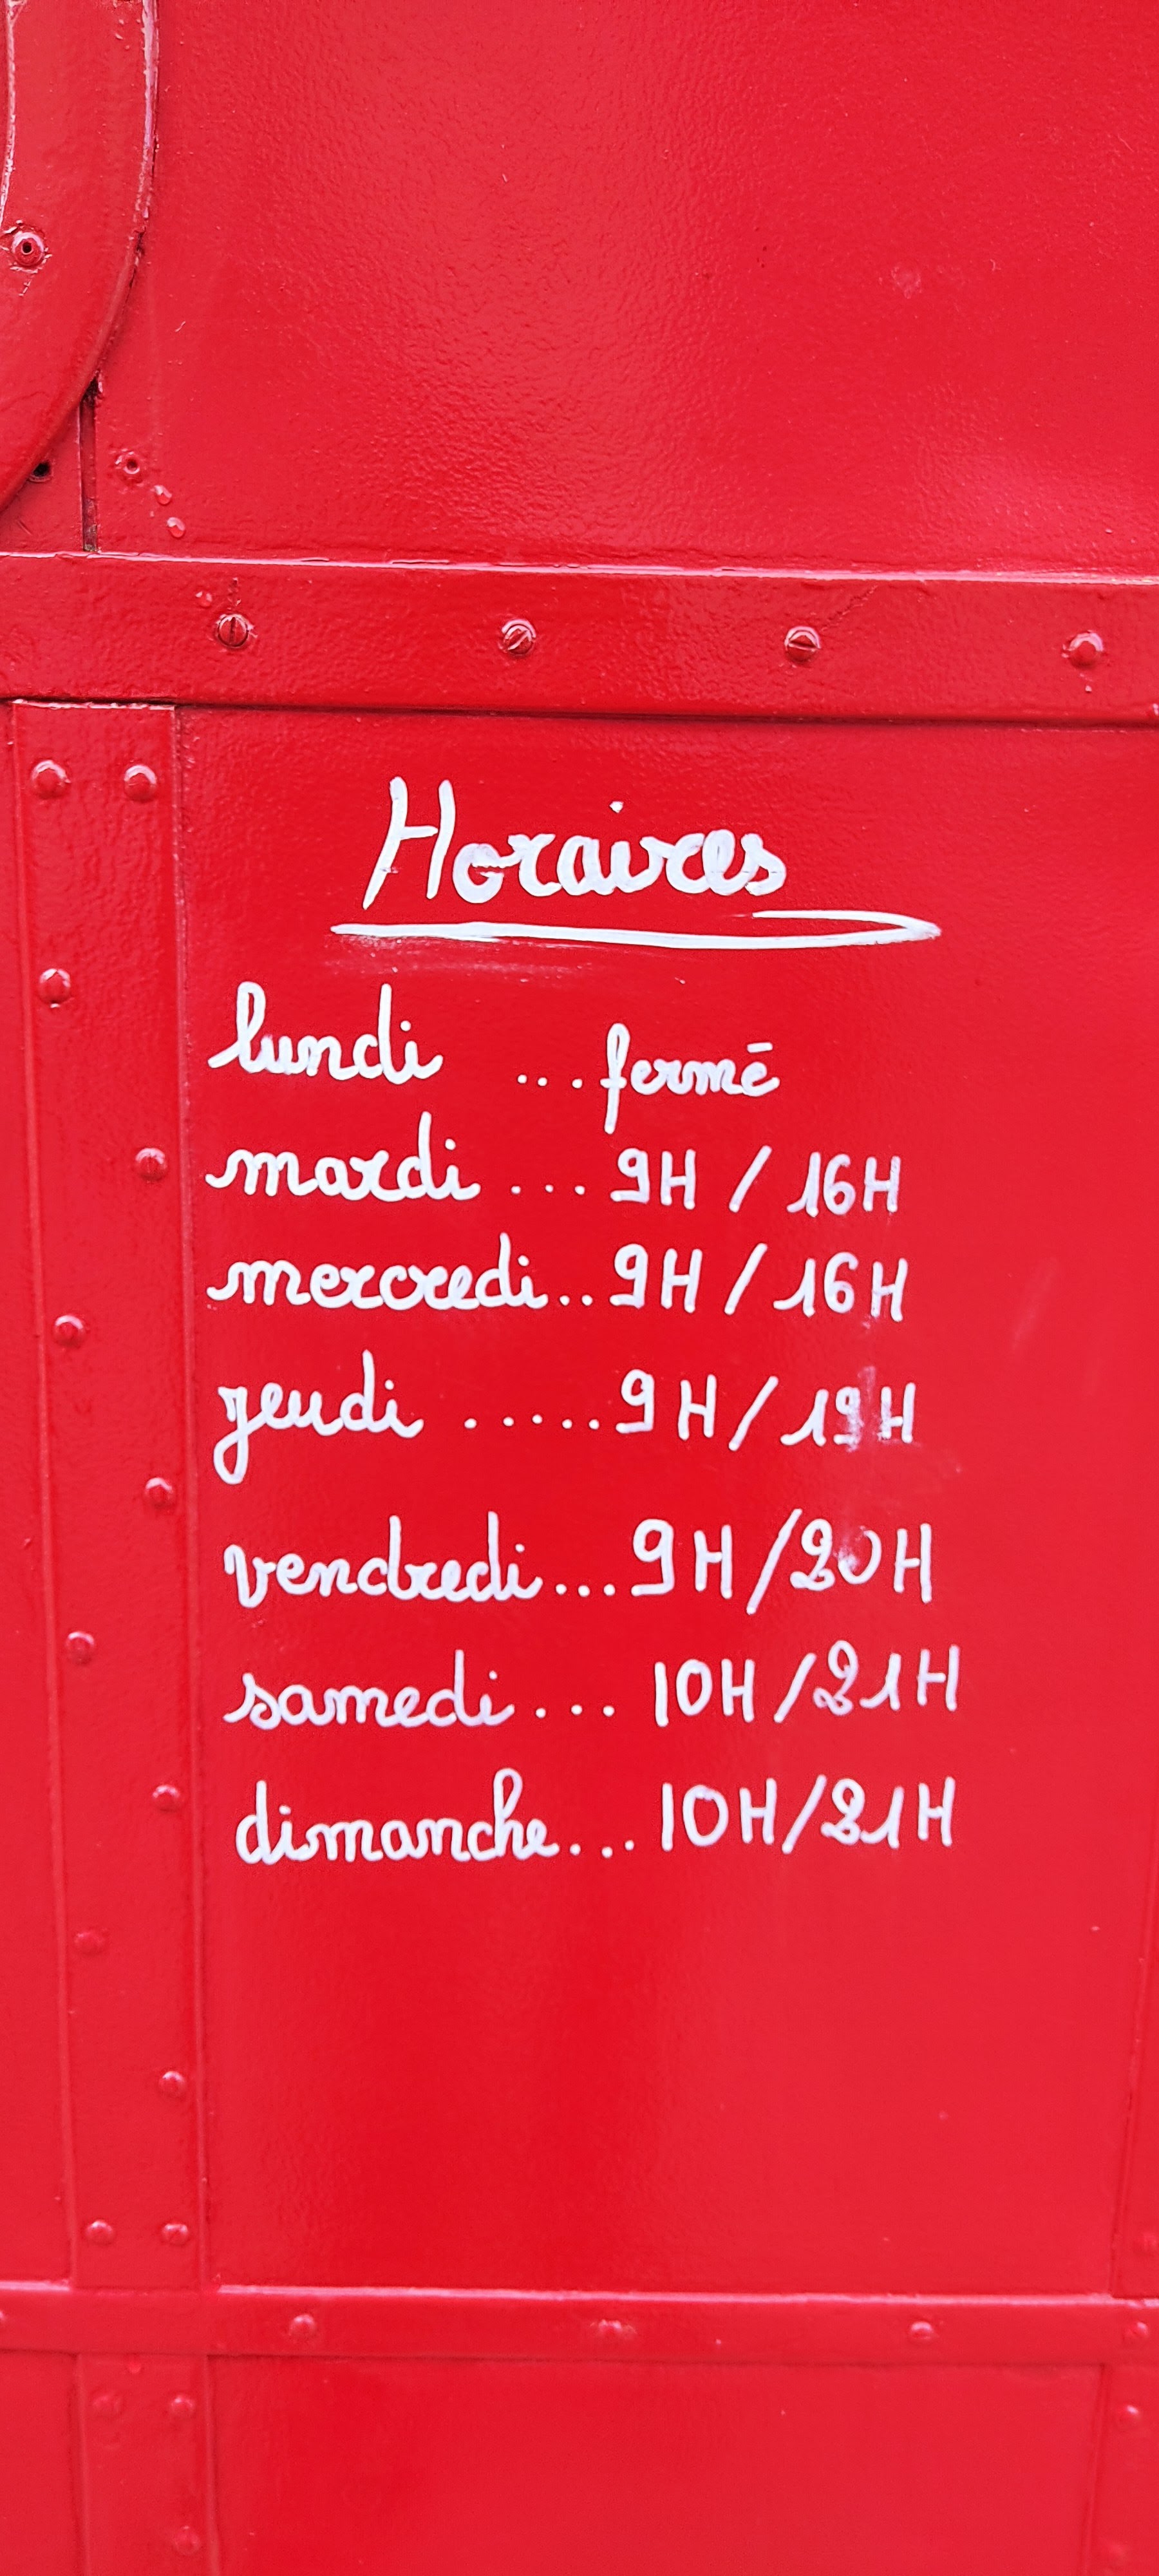 Horaires
lundi ... fermé
mardi ... 9H / 16H
mercredi .. 9H / 16H
jeudi ..... 9H / 19H
vendredi ... 9H / 20H
samedi ... 10H / 21H
dimanche ... 10H / 21H